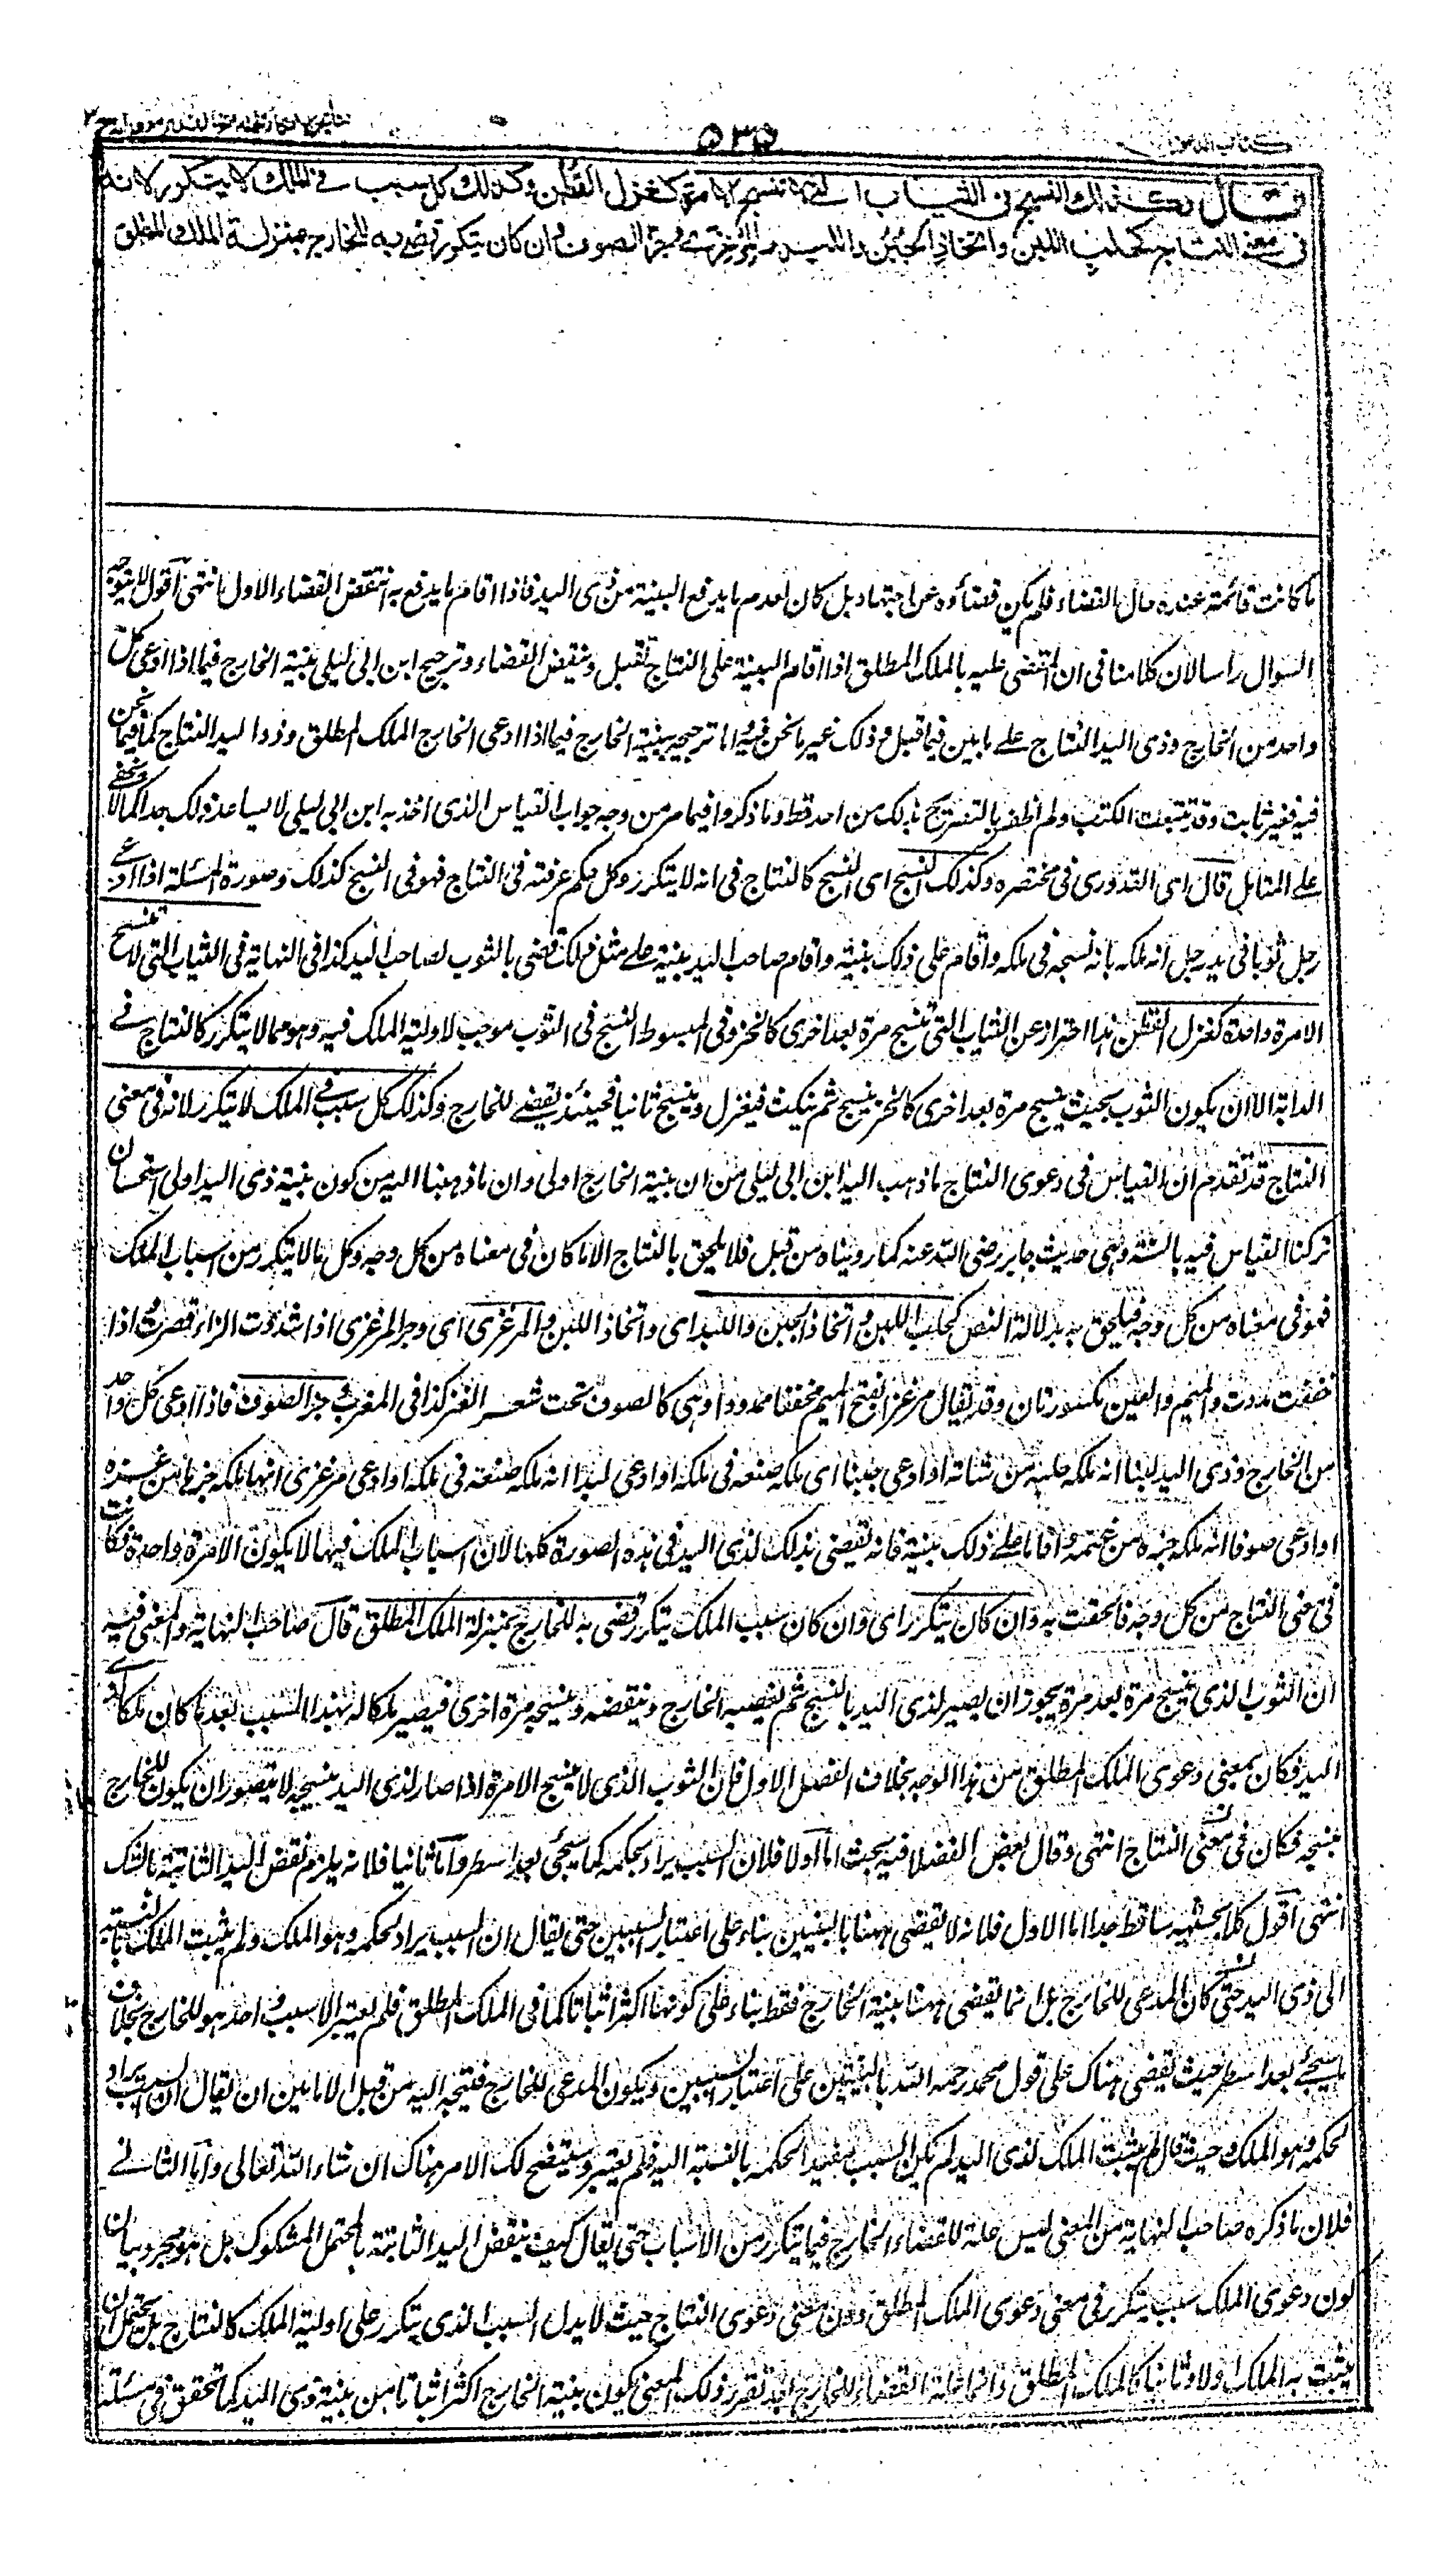 ٥٣٥
قال وكذلك النسج في الثياب التي لا تنسج الا مرة كغزل القطن وكذلك كل سبب في الملك لا يتكرر لانه
في معنى النتاج كحلب اللبن واتخاذ الجبن واللبد والمرعزى وجز الصوف وان كان يتكرر قضى به للخارج بمنزلة الملك المطلق
ما كانت قائمة عنده حال القضاء فلم يكن قضاؤه عن اجتهاد بل كان لعدم ما يدفع البينة من ذى اليد فاذا اقام ما يدفع به انتقض القضاء الاول انتهى اقول لا يتوجه
السوال راسا لان كلامنا فى ان المقضى عليه بالملك المطلق اذا اقام البينة على النتاج تقبل وينقض القضاء وترجيح ابن ابى ليلى بينة الخارج فيما اذا ادعى كل
واحد من الخارج وذى اليد النتاج على ما بين فيما قبل وذلك غير ما نحن فيه واما ترجيحه بينة الخارج فيما اذا ادعى الخارج الملك المطلق وذو اليد النتاج كما فيما نحن
فيه فغير ثابت وقد تتبعت الكتب ولم اظفر بالتصريح بذلك من احد قط وما ذكروا فيما مر من وجه جواب القياس الذى اخذ به ابن ابى ليلى لا يساعد ذلك جدا كما لا يخفى
على المتامل قال اى القدورى فى مختصره وكذلك النسج اى النسج كالنتاج فى انه لا يتكرر وكل حكم عرفته فى النتاج فهو فى النسج كذلك وصورة المسئلة اذا ادعى
رجل ثوبا فى يد رجل انه ملكه بانه نسجه فى ملكه واقام على ذلك بينة واقام صاحب اليد بينة على مثل ذلك قضى بالثوب لصاحب اليد كذا فى النهاية فى الثياب التى لا تنسج
الا مرة واحدة كغزل القطن هذا احتراز عن الثياب التى تنسج مرة بعد اخرى كالخز وفى المبسوط النسج فى الثوب موجب لاولية الملك فيه وهو مما لا يتكرر كالنتاج فى
الدابة الا ان يكون الثوب بحيث ينسج مرة بعد اخرى كالخز ينسج ثم ينكث فيغزل وينسج ثانيا فحينئذ يقضى للخارج وكذلك كل سبب فى الملك لا يتكرر لانه فى معنى
النتاج قد تقدم ان القياس فى دعوى النتاج ما ذهب اليه ابن ابى ليلى من ان بينة الخارج اولى وان ما ذهبنا اليه من كون بينة ذى اليد اولى استحسان
تركنا القياس فيه بالسنة وهى حديث جابر رضى الله عنه كما رويناه من قبل فلا يلحق بالنتاج الا ما كان فى معناه من كل وجه وكل ما لا يتكرر من اسباب الملك
فهو فى معناه من كل وجه فيلحق به بدلالة النص كحلب اللبن واتخاذ الجبن واللبد اى واتخاذ اللبد والمرعزى اى وجز المرعزى اذا شددت الزاء قصرت اذا
خففت مددت والميم والعين مكسورتان وقد يقال مرعزا بفتح الميم مخففا ممدودا وهى كالصوف تحت شعر العنز كذا فى المغرب وجز الصوف فاذا ادعى كل واحد
من الخارج وذى اليد لبنا انه ملكه حلبه من شاته او ادعى جبنا اى ملكه صنعه فى ملكه او ادعى لبدا انه ملكه صنعه فى ملكه او ادعى مرعزى انها ملكه جزها من عنزه
او ادعى صوفا انه ملكه جزه من غنمه واقاما على ذلك بينة فانه يقضى بذلك لذى اليد فى هذه الصورة كلها لان اسباب الملك فيها لا يكون الا مرة واحدة فكانت
فى معنى النتاج من كل وجه فالحقت به وان كان يتكرر اى وان كان سبب الملك يتكرر قضى به للخارج بمنزلة الملك المطلق قال صاحب النهاية والمعنى فيه
ان الثوب الذى ينسج مرة بعد مرة يجوز ان يصير لذى اليد بالنسج ثم يغصبه الخارج وينقضه وينسجه مرة اخرى فيصير ملكا له بهذا السبب بعد ما كان ملكا لذى
اليد فكان بمعنى دعوى الملك المطلق من هذا الوجه بخلاف الفصل الاول فان الثوب الذى لا ينسج الا مرة اذا صار لذى اليد بنسجه لا يتصور ان يكون للخارج
بنسجه فكان فى معنى النتاج انتهى وقال بعض الفضلاء فيه بحث اما اولا فلان السبب يراد بحكمه كما سيجئ بعد اسطر واما ثانيا فلانه يلزم نقض اليد الثابتة بالشك
انتهى اقول كلا بحثيه ساقط جدا اما الاول فلانه لا يقضى ههنا بالبينتين بناء على اعتبار السببين حتى يقال ان السبب يراد لحكمه وهو الملك ولم يثبت الملك بالنسبة
الى ذى اليد حتى كان المدعى للخارج بل انما يقضى ههنا ببينة الخارج فقط بناء على كونها اكثر اثباتا كما فى الملك المطلق فلم يعتبر الا سبب واحد هو للخارج بخلاف
ما سيجئ بعد اسطر حيث يقضى هناك على قول محمد رحمه الله بالبينتين على اعتبار السببين ويكون المدعى للخارج فيتجه اليه من قبل الامامين ان يقال ان السبب يراد
لحكمه وهو الملك وحيث قال لم يثبت الملك لذى اليد لم يكن السبب مفيدا لحكمه بالنسبة اليه فلم يعتبر وسيتضح لك الامر هناك ان شاء الله تعالى واما الثانى
فلان ما ذكره صاحب النهاية من المعنى ليس علة للقضاء للخارج فيما يتكرر من الاسباب حتى يقال كيف ينقض اليد الثابتة بالمحتمل المشكوك بل هو مجرد بيان
كون دعوى الملك بسبب يتكرر فى معنى دعوى الملك المطلق دون معنى دعوى النتاج حيث لا يدل السبب الذى يتكرر على اولية الملك كالنتاج بل يحتمل ان
يثبت به الملك اولا وثانيا كالملك المطلق وانما علة القضاء للخارج بعد تقرر ذلك المعنى كون بينة الخارج اكثر اثباتا من بينة ذى اليد كما تحقق فى مسئلة